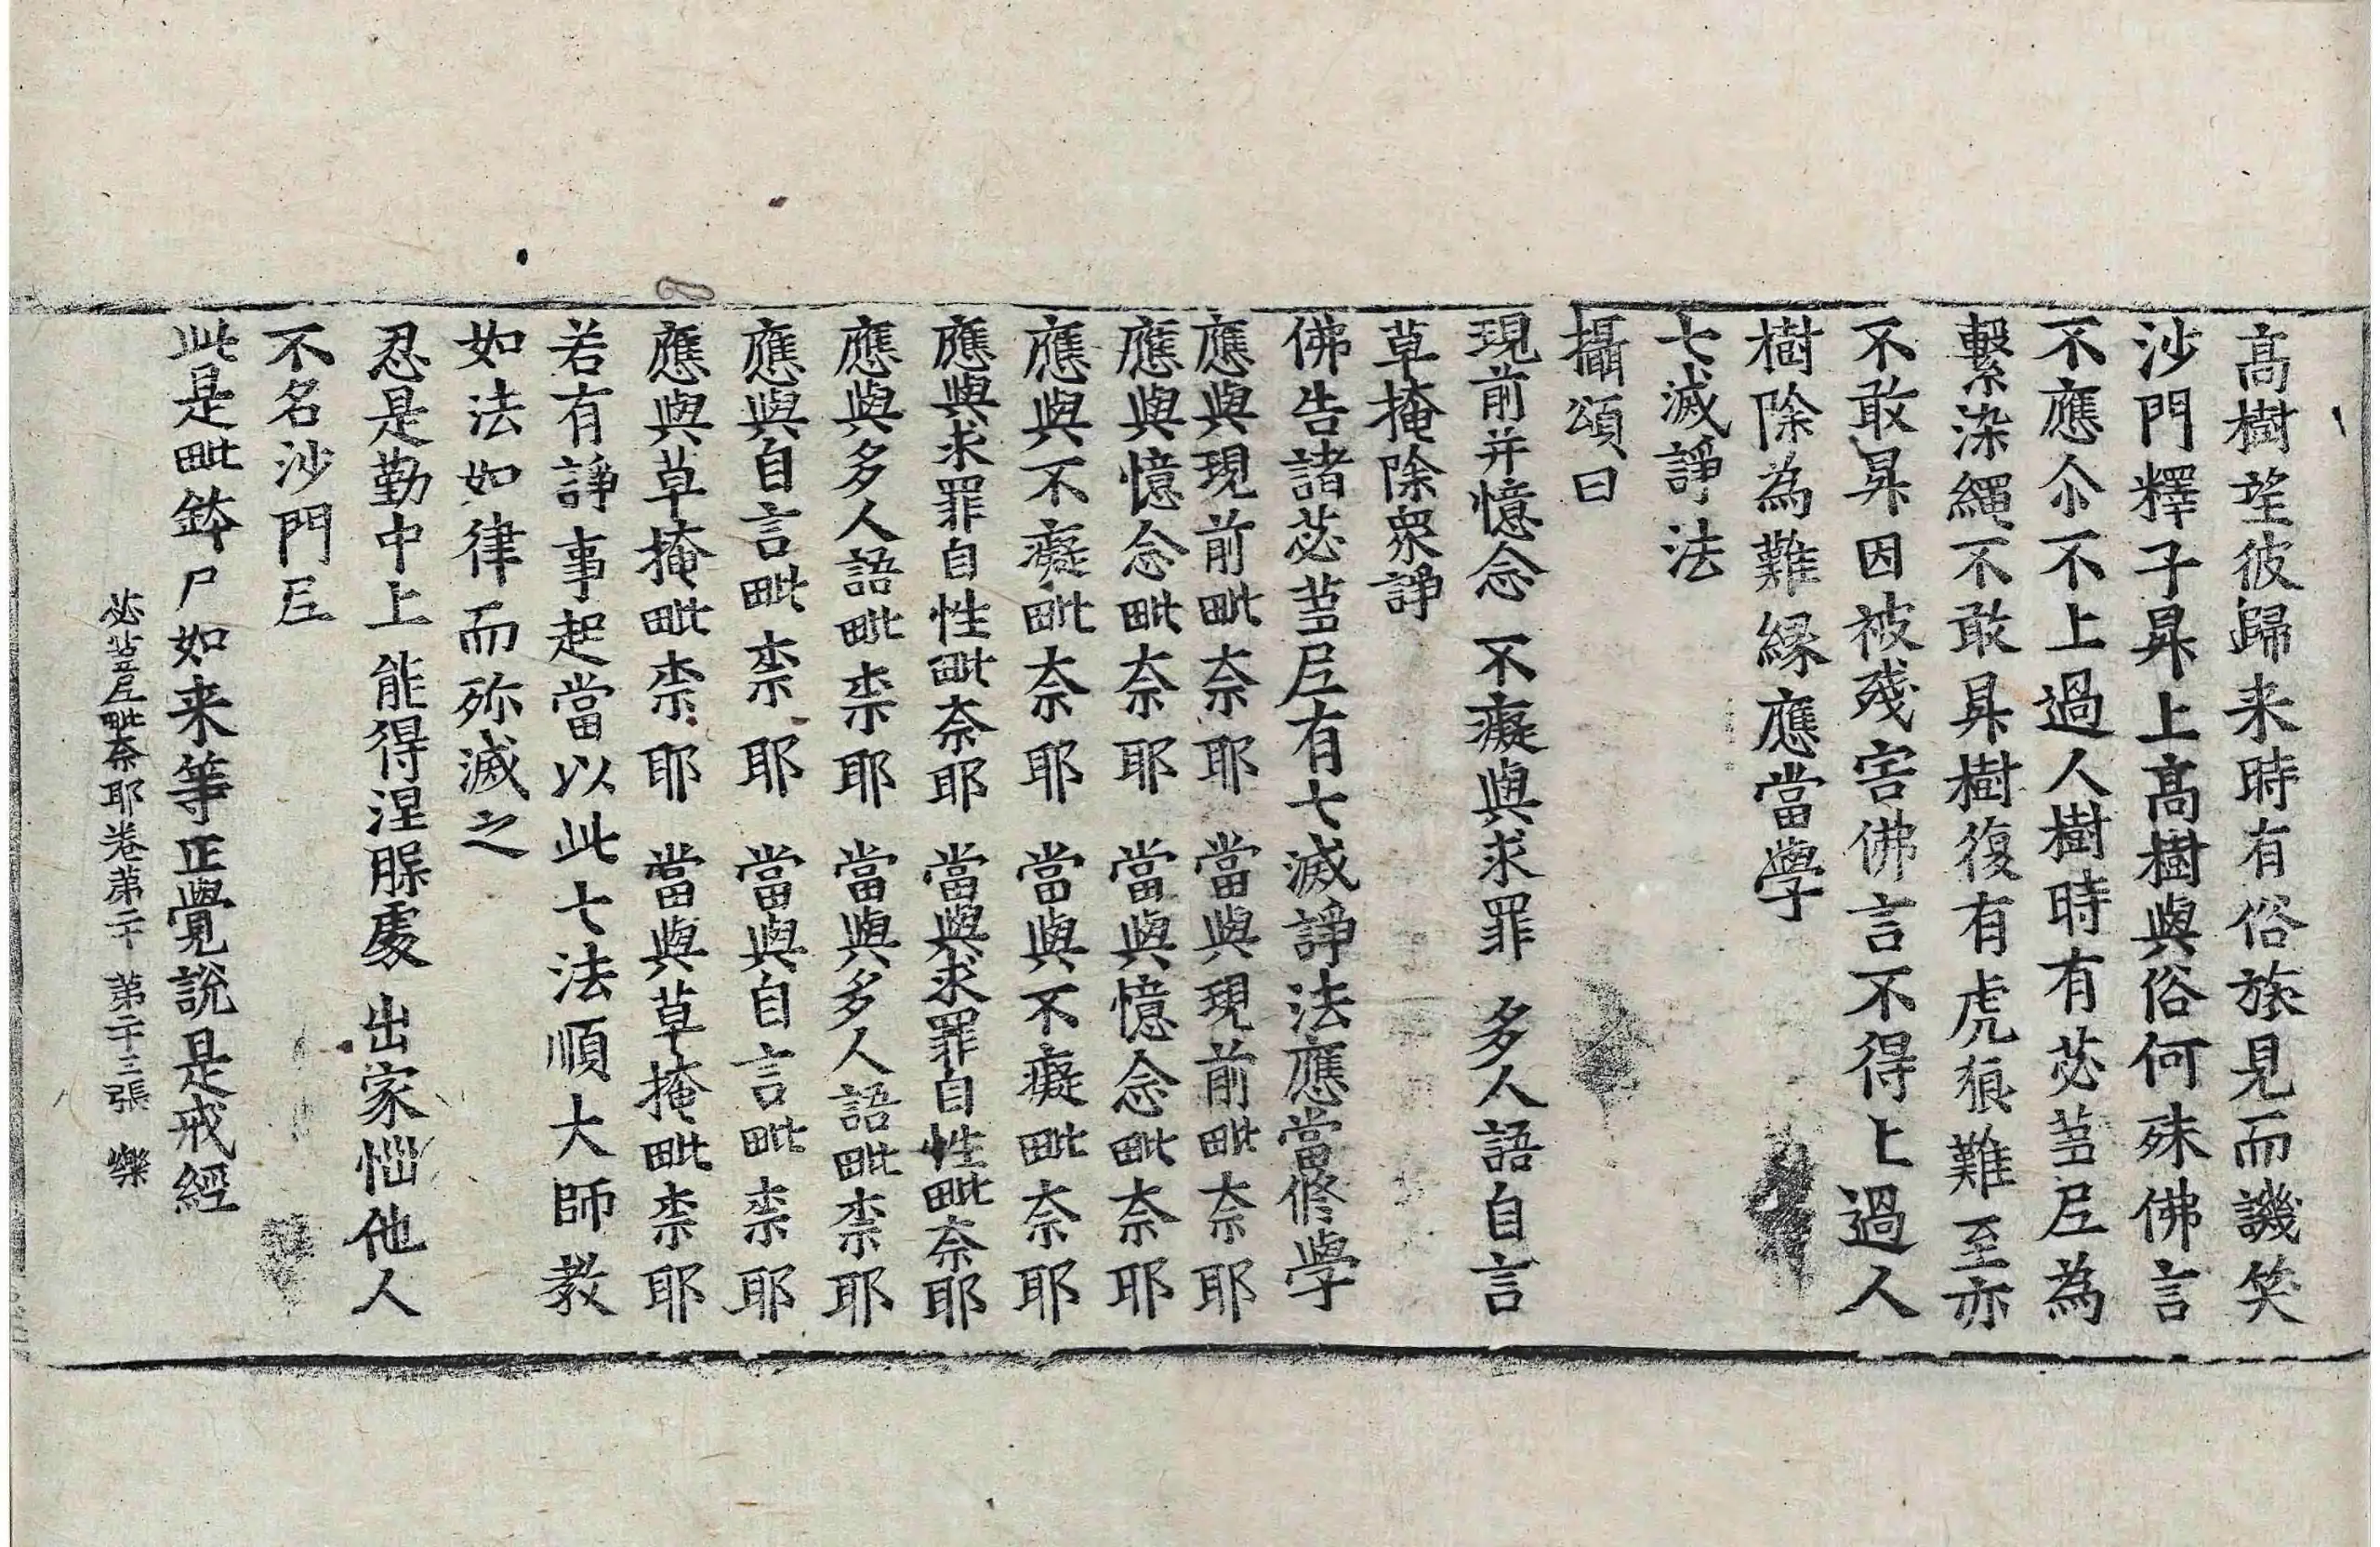 高樹望彼歸来時有俗族見而譏笑
沙門釋子昇上髙樹與俗何殊佛言
不應尒不上過人樹時有苾蒭尼為
繫染繩不敢昇樹復有虎狼難至亦
不敢昇因被殘害佛言不得上過人
樹除為難緣應當學
七滅諍法
攝頌曰
現前并憶念　不癡與求罪　多人語自言
草掩除衆諍
佛告諸苾蒭尼有七滅諍法應當修學
應與現前毗奈耶　當與現前毗奈耶
應與憶念毗奈耶　當與憶念毗奈耶
應與不癡毗奈耶　當與不癡毗奈耶
應與求罪自性毗奈耶　當與求罪自性毗奈耶
應與多人語毗柰耶　當與多人語毗柰耶
應與自言毗柰耶　當與自言毗柰耶
應與草掩毗柰耶　當與草掩毗柰耶
若有諍事起當以此七法順大師教
如法如律而殄滅之
忍是勤中上　能得涅槃處　出家惱他人
不名沙門尼
此是毗鉢尸如来等正覺說是戒經
苾蒭尼毗奈耶卷第二十　第二十三張　樂